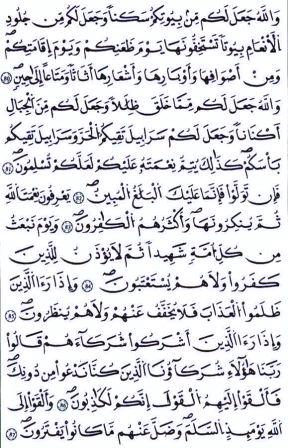 وَاللَّهُ جَعَلَ لَكُم مِّنۢ بُيُوتِكُمْ سَكَناً وَجَعَلَ لَكُم مِّن جُلُودِ
الْأَنْعَٰمِ بُيُوتاً تَسْتَخِفُّونَهَا يَوْمَ ظَعَنِكُمْ وَيَوْمَ إِقَامَتِكُمْ
وَمِنْ أَصْوَافِهَا وَأَوْبَارِهَا وَأَشْعَارِهَا أَثَٰثاً وَمَتَٰعاً إِلَىٰ حِينٍ
وَاللَّهُ جَعَلَ لَكُم مِّمَّا خَلَقَ ظِلَٰلاً وَجَعَلَ لَكُم مِّنَ الْجِبَالِ
أَكْنَٰناً وَجَعَلَ لَكُمْ سَرَٰبِيلَ تَقِيكُمُ الْحَرَّ وَسَرَٰبِيلَ تَقِيكُم
بَأْسَكُمْ كَذَٰلِكَ يُتِمُّ نِعْمَتَهُ عَلَيْكُمْ لَعَلَّكُمْ تُسْلِمُونَ
فَإِن تَوَلَّوْا فَإِنَّمَا عَلَيْكَ الْبَلَٰغُ الْمُبِينُ يَعْرِفُونَ نِعْمَتَ اللَّهِ
ثُمَّ يُنكِرُونَهَا وَأَكْثَرُهُمُ الْكَٰفِرُونَ وَيَوْمَ نَبْعَثُ
مِن كُلِّ أُمَّةٍ شَهِيداً ثُمَّ لَا يُوذَنُ لِلَّذِينَ
كَفَرُوا وَلَا هُمْ يُسْتَعْتَبُونَ وَإِذَا رَءَا الَّذِينَ
ظَلَمُوا الْعَذَابَ فَلَا يُخَفَّفُ عَنْهُمْ وَلَا هُمْ يُنظَرُونَ
وَإِذَا رَءَا الَّذِينَ أَشْرَكُوا شُرَكَاءَهُمْ قَالُوا
رَبَّنَا هَٰؤُلَاءِ شُرَكَاؤُنَا الَّذِينَ كُنَّا نَدْعُوا مِن دُونِكَ
فَأَلْقَوْا إِلَيْهِمُ الْقَوْلَ إِنَّكُمْ لَكَٰذِبُونَ وَأَلْقَوْا إِلَى
اللَّهِ يَوْمَئِذٍ السَّلَمَ وَضَلَّ عَنْهُم مَّا كَانُوا يَفْتَرُونَ